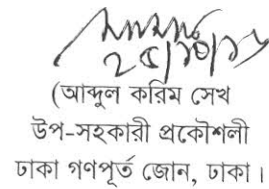 (আব্দুল করিম সেখ
উপ-সহকারী প্রকৌশলী
ঢাকা গণপূর্ত জোন, ঢাকা।